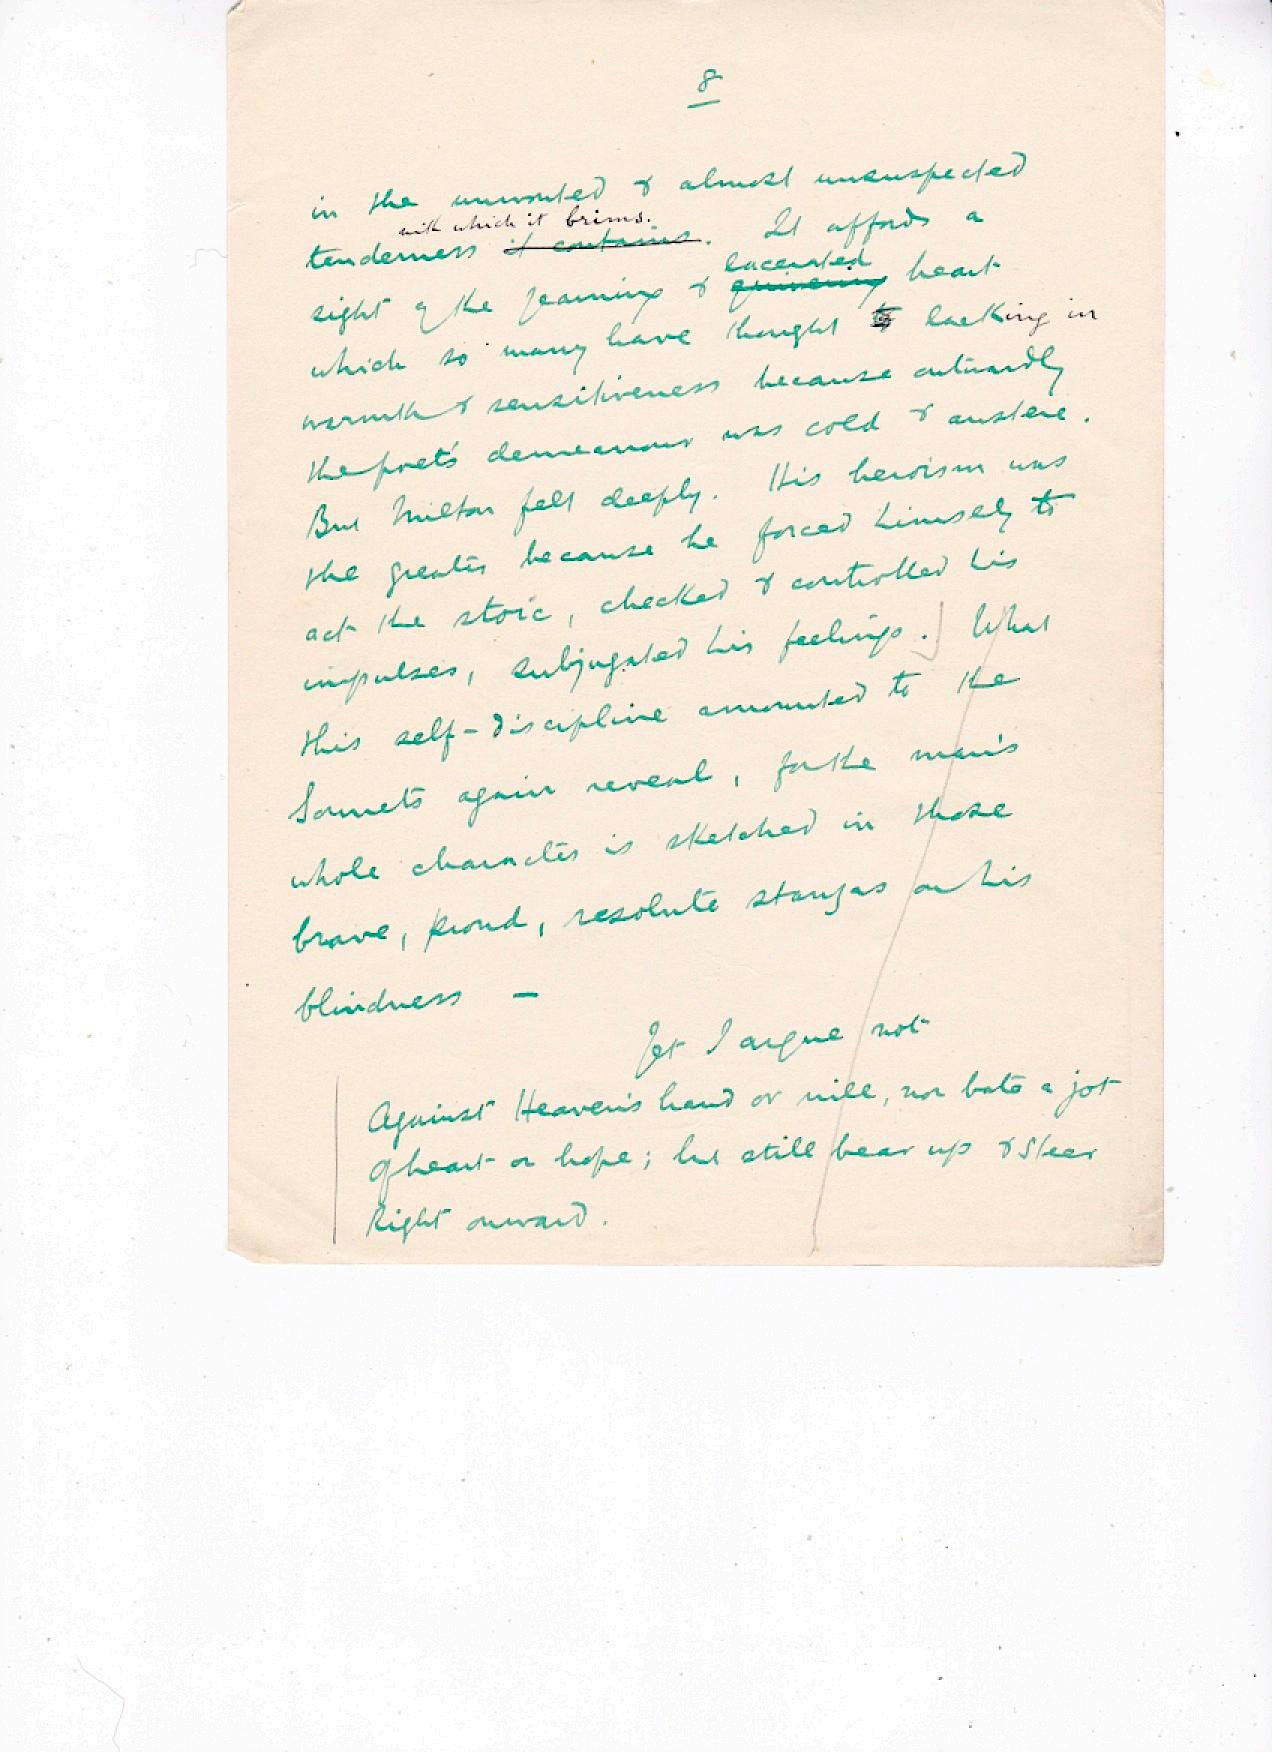 8
in the unwonted & almost unsuspected
with which it brims.
tenderness it contains. It affords a
lacerated
sight of the yearning & quivering heart
which so many have thought lacking in
warmth & sensitiveness because outwardly
the poet's demeanour was cold & austere.
But Milton felt deeply. His heroism was
the greater because he forced himself to
act the stoic, checked & controlled his
impulses, subjugated his feelings.] What
this self-discipline amounted to the
Sonnets again reveal, for the man's
whole character is sketched in those
brave, proud, resolute stanzas on his
blindness –
Yet I argue not
Against Heaven's hand or will, nor bate a jot
Of heart or hope; but still bear up & steer
Right onward.